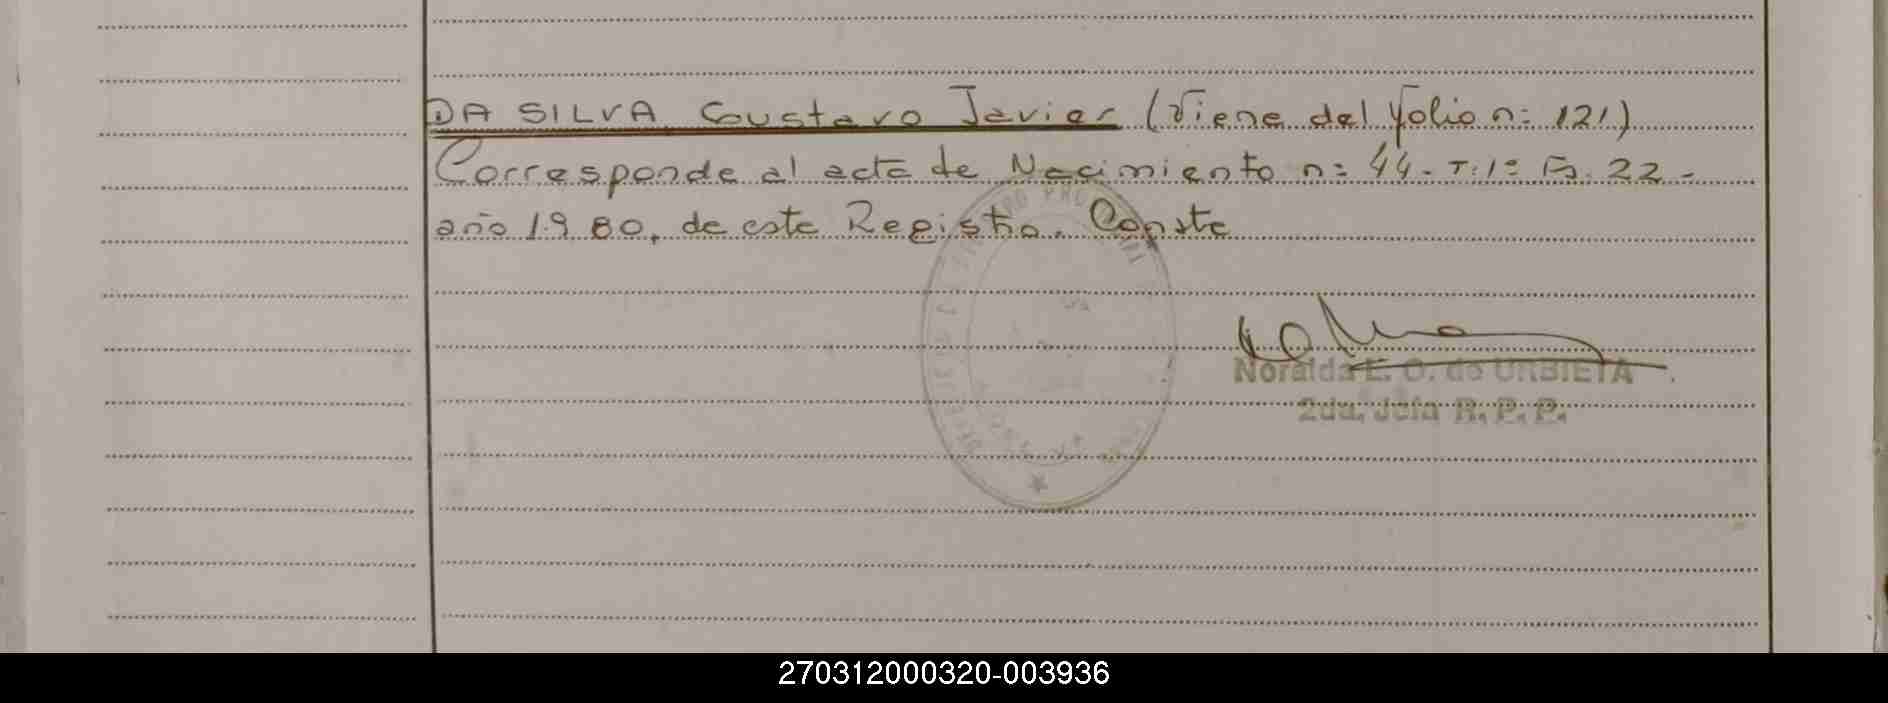 DA SILVA, Gustavo Javier (Viene del folio n: 121)
Corresponde al acta de Nacimiento n: 44- T:1º Fº. 22-
año 1980, de este Registro. Conste
Noralda E. O. de URBIETA
2da. Jefa R. P. P.
270312000320-003936